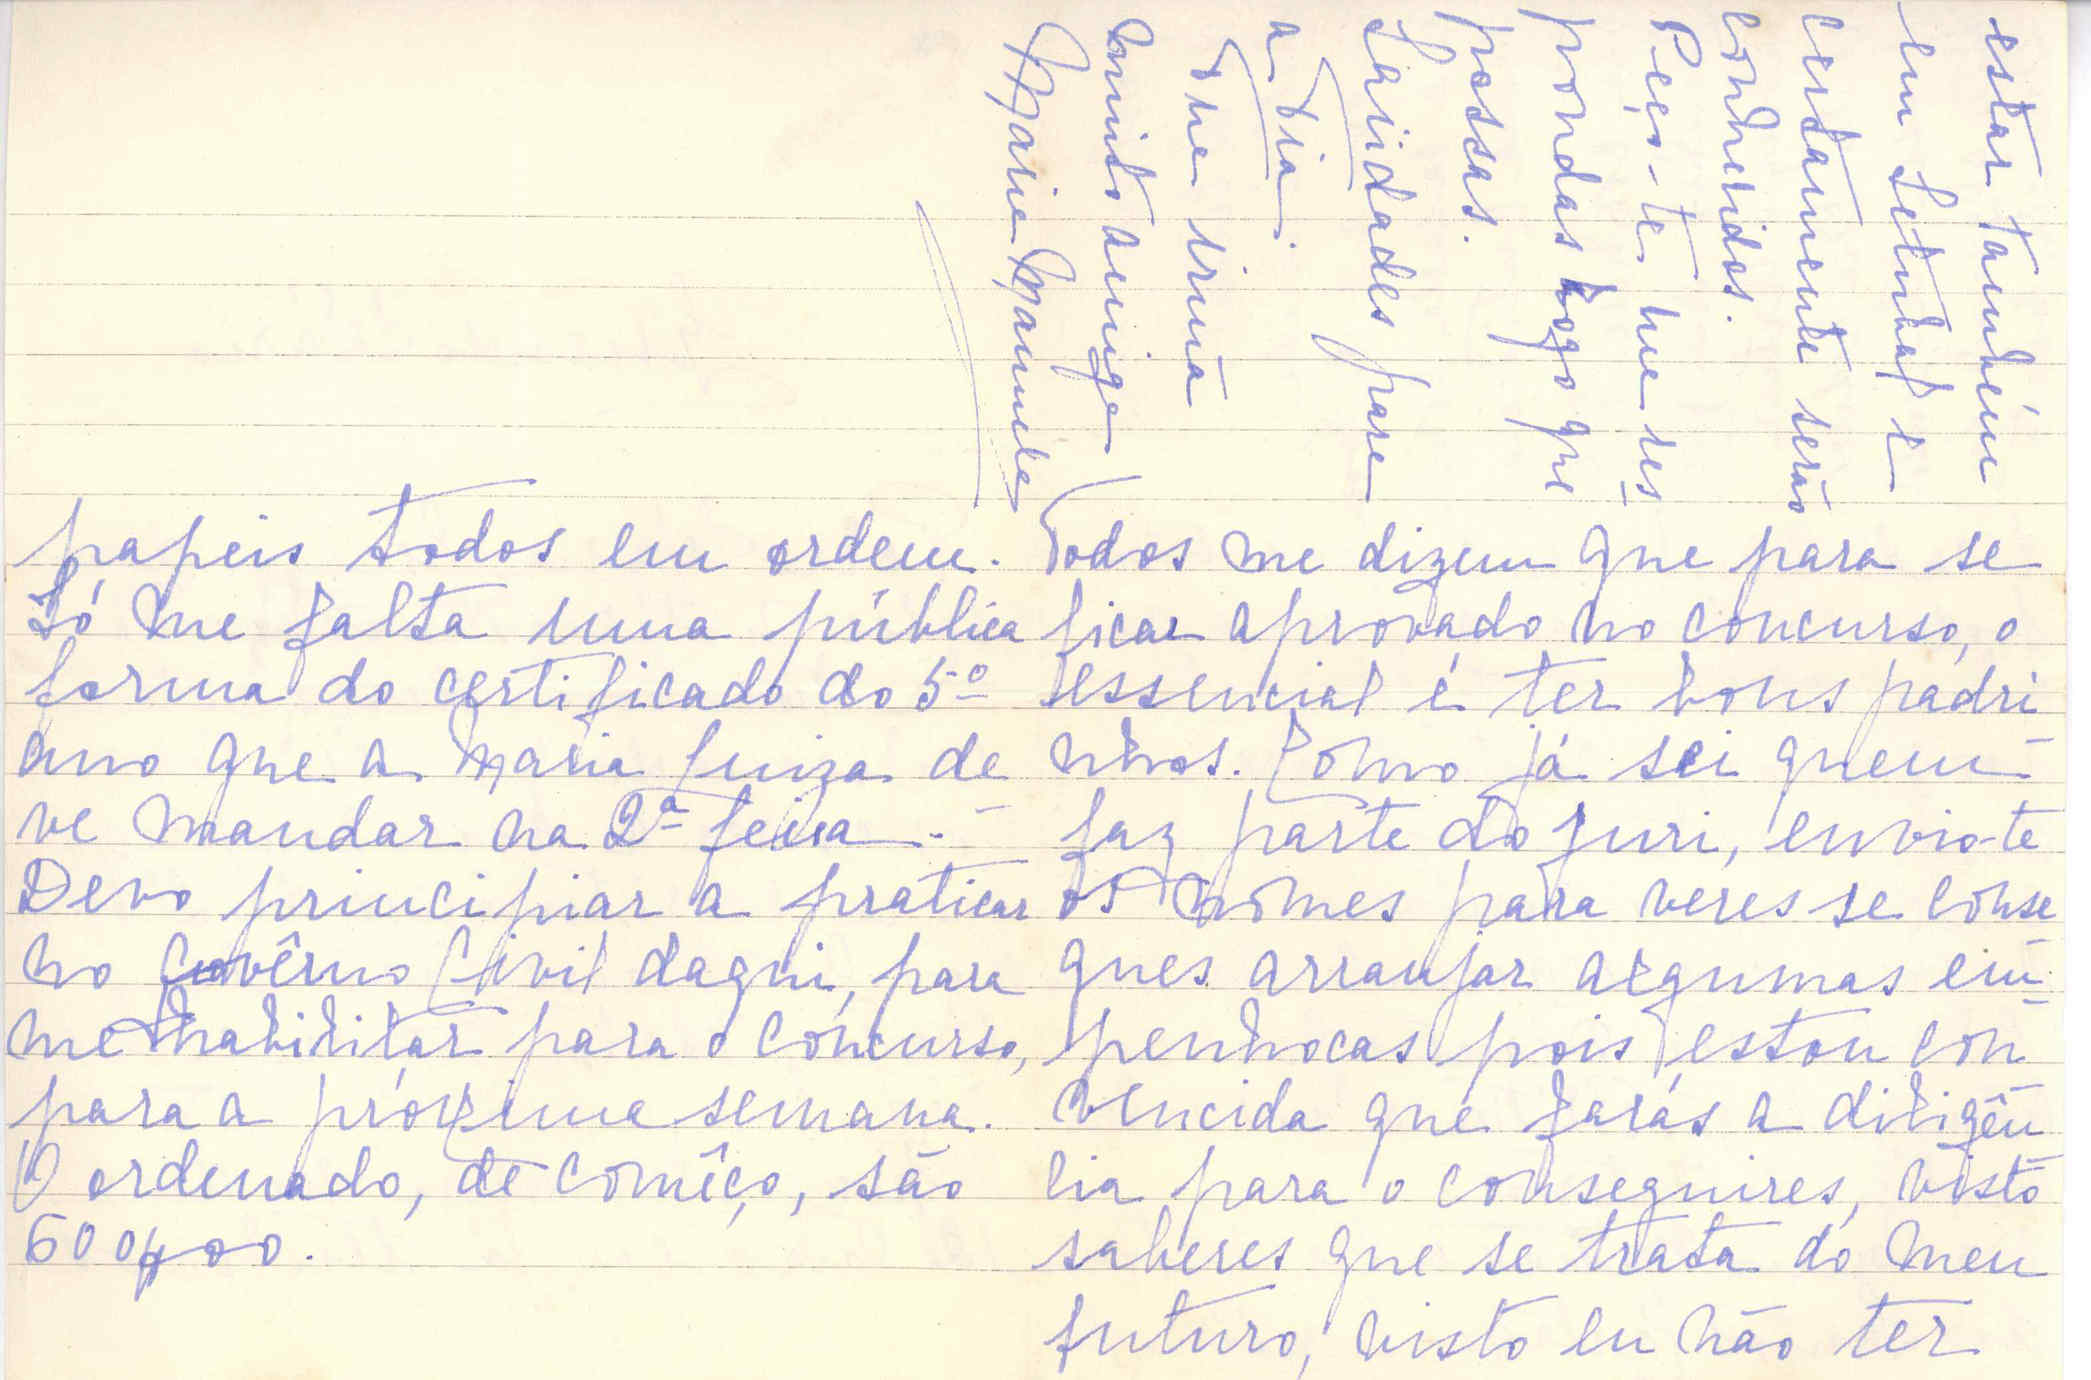 papeis todos em ordem.
Só me falta uma pública
forma do certificado do 5º
ano que a Maria Luiza de
ve mandar na 2ª feira.-
Devo principiar a praticar
no Govêrno Civil daqui, para
me habilitar para o concurso,
para a próxima semana.
O ordenado, de comêço, são
600$00.
Todos me dizem que para se
ficar aprovado no concurso, o
essencial é ter bons padri
nhos. Como já sei quem
faz parte do juri, envio-te
os nomes para veres se conse
gues arranjar algumas em-
penhocas pois estou con
vencida que farás a diligên
cia para o conseguires, visto
saberes que se trata do meu
futuro, visto eu não ter
estar também
em Setubal e
certamente serão
conhecidos.
Peço-te me res
pondas logo que
possas.
Saüdades para
a tia.
Tua prima
muito amiga
Maria Manuela